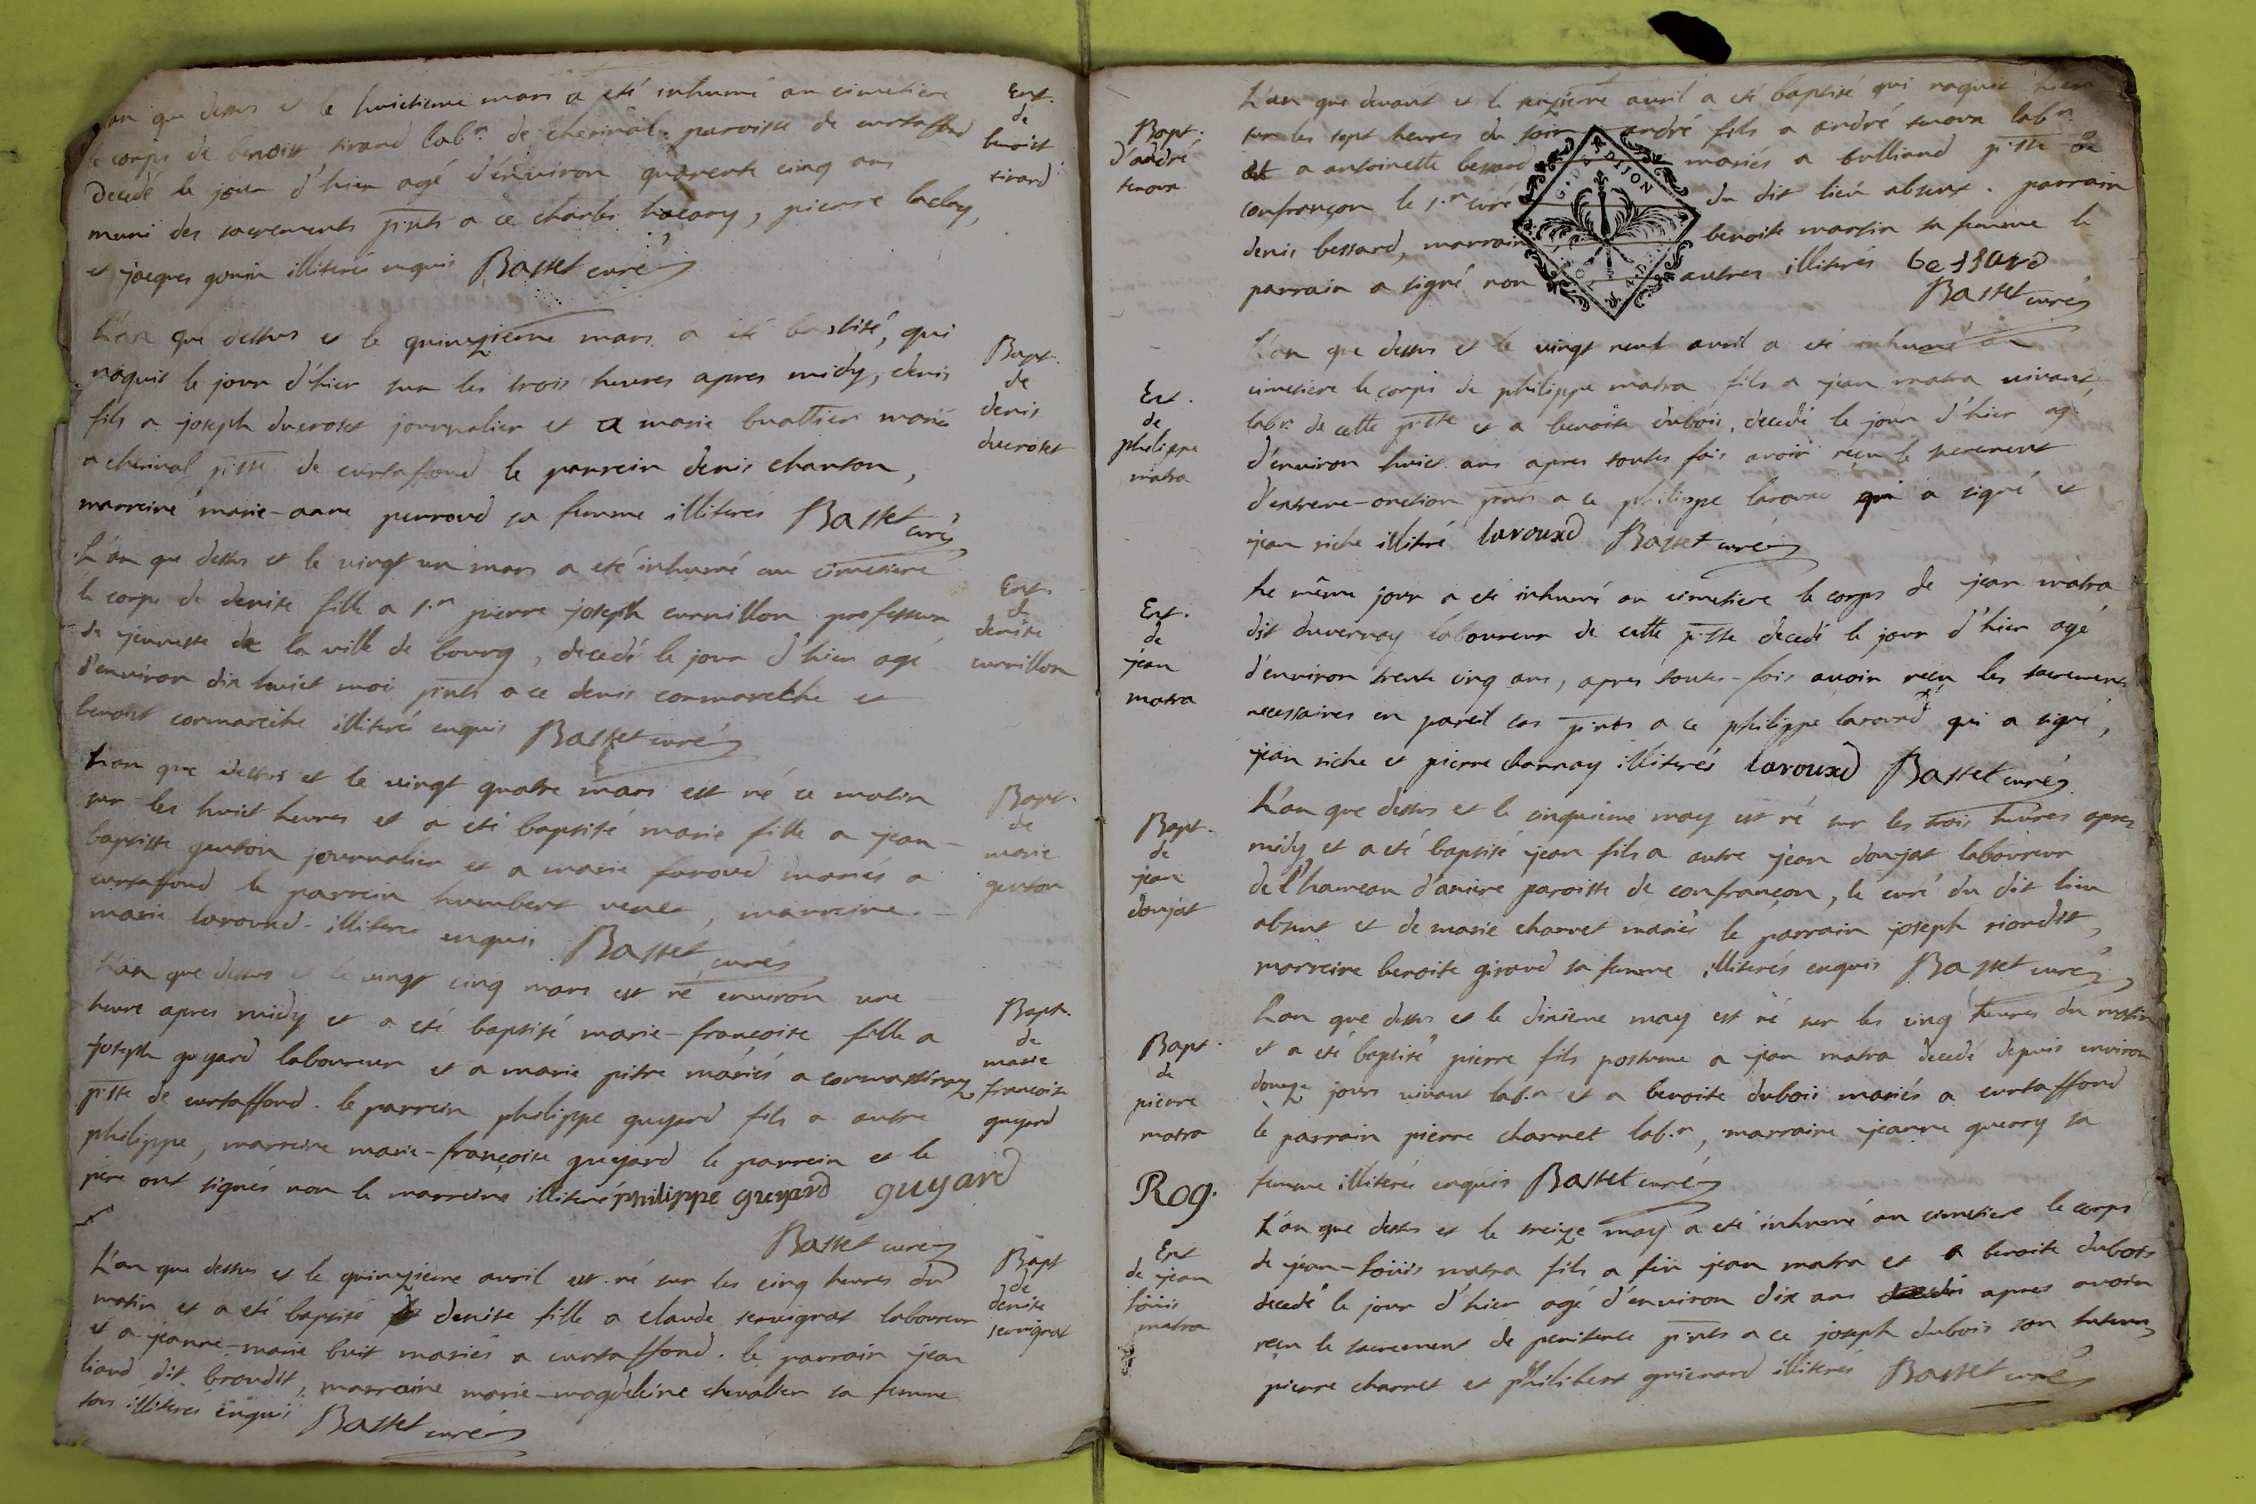 an que dessus et le huictieme mars a eté inhumé au cimetiere
le corps de benoist tirand lab.r de cherinal paroisse de curtaffond
decedé le jour d'hier agé d'environ quarente cinq ans
muni des sacrements pnts a ce charles pierre
et jacques gonin illiterés enquis Basset curé
Ent.
de
benoist
tirand
L'an que dessus et le quinzieme mars a eté baptisé, qui
naquit le jour d'hier sur les trois heures apres midy, denis
fils a joseph ducroset journalier et a marie buathier mariés
a cherinal psse de curtaffond le parrein denis chanson,
marreine marie-anne perroud sa femme illiterés Basset curé
Bapt.
de
denis
ducroset
L'an que dessus et le vingt un mars a eté inhumé au cimetiere
le corps de denise fille a s.r pierre joseph curnillon professeur
de jeunesse de la ville de bourg, decedé le jour d'hier agé
d'environ dix huict moi pnts a ce denis cormareche et
benoist cormareche illiterés enquis Basset curé
Ent.
de
denise
curnillon
L'an que dessus et le vingt quatre mars est né ce matin
sur les huict heures et a eté baptisé marie fille a jean-
baptiste genton journalier et a marie faroud mariés a
curtaffond le parrein humbert marreine
marie laroud illiteres enquis Basset curé
Bapt.
de
marie
genton
L'an que dessus et le vingt cinq mars est né environ une
heure apres midy et a eté baptisé marie-francoise fille a
joseph guyard laboureur et a marie pitre mariés a cormassiney
psse de curtaffond. le parrein philippe guyard fils a autre
philippe, marreine marie-françoise guyard le parrein et le
pere ont signés non la marreine illiteré philippe guyard guyard
Basset curé
Bapt.
de
marie
françoise
guyard
L'an que dessus et le quinzieme avril est né sur les cinq heures du
matin et a eté baptisé denise fille a claude servignat laboureur
et a jeanne-marie buit mariés a curtaffond. le parrain jean
liand dit brondit, marraine marie-magdeleine chevalier sa femme
tous illiterés enquis Basset curé
Bapt
de
denise
servignat
L'an que devant et le seizieme avril a eté baptisé qui naquit hier
sur les sept heures du soir andré fils a andré tenoux lab.r
et a antoinette bessard mariés a bulliand psse de
confrançon le s.r curé du dit lieu absent. parrain
denis bessard, marraine benoite martin sa femme le
parrain a signé non autres illiterés bessard
Basset curé
G.D. DIJON
Bapt.
d'andré
tenoux
L'an que dessus et le vingt neuf avril a eté inhumé au
cimetiere le corps de philippe matra fils a jean matra vivant
lab.r de cette psse et a benoite dubois, decedé le jour d'hier agé
d'environ huict ans apres toutes fois avoir reçu le sacrement
d'extreme-onction pnts a ce philippe laroud qui a signé et
jean riche illitré larouxd Basset curé
Ent.
de
philippe
matra
Le même jour a eté inhumé au cimetiere le corps de jean matra
dit duvernay laboureur de cette psse decedé le jour d'hier agé
d'environ trente cinq ans, apres toutes-fois avoir reçu les sacrements
necessaires en pareil cas pnts a ce philippe laroud qui a signé,
jean riche et pierre charnay illiterés larouxd Basset curé
Ent.
de
jean
matra
L'an que dessus et le cinquieme may est né sur les trois heures apres
midy et a eté baptisé jean fils a autre jean doujat laboureur
de l'hameau d'aniere paroisse de confrançon, le curé du dit lieu
absent et de marie charnet mariés le parrain joseph riondet,
marreine benoite girand sa femme illiterés enquis Basset curé
Bapt.
de
jean
doujat
L'an que dessus et le dixieme may est né sur les cinq heures du matin
et a eté baptisé pierre fils postume a jean matra decedé depuis environ
douze jours vivant lab.r et a benoite dubois mariés a curtaffond
le parrain pierre charnet lab.r, marraine jeanne guerry sa
femme illiterés enquis Basset curé
Bapt.
de
pierre
matra
Rog.
L'an que dessus et le treize may a eté inhumé au cimetiere le corps
de jean-loüis matra fils a fëu jean matra et a benoite dubois
decedé le jour d'hier agé d'environ dix ans apres avoir
reçu le sacrement de penitence pnts a ce joseph dubois son tuteur,
pierre charnet et philibert illiterés Basset curé
Ent
de jean
loüis
matra